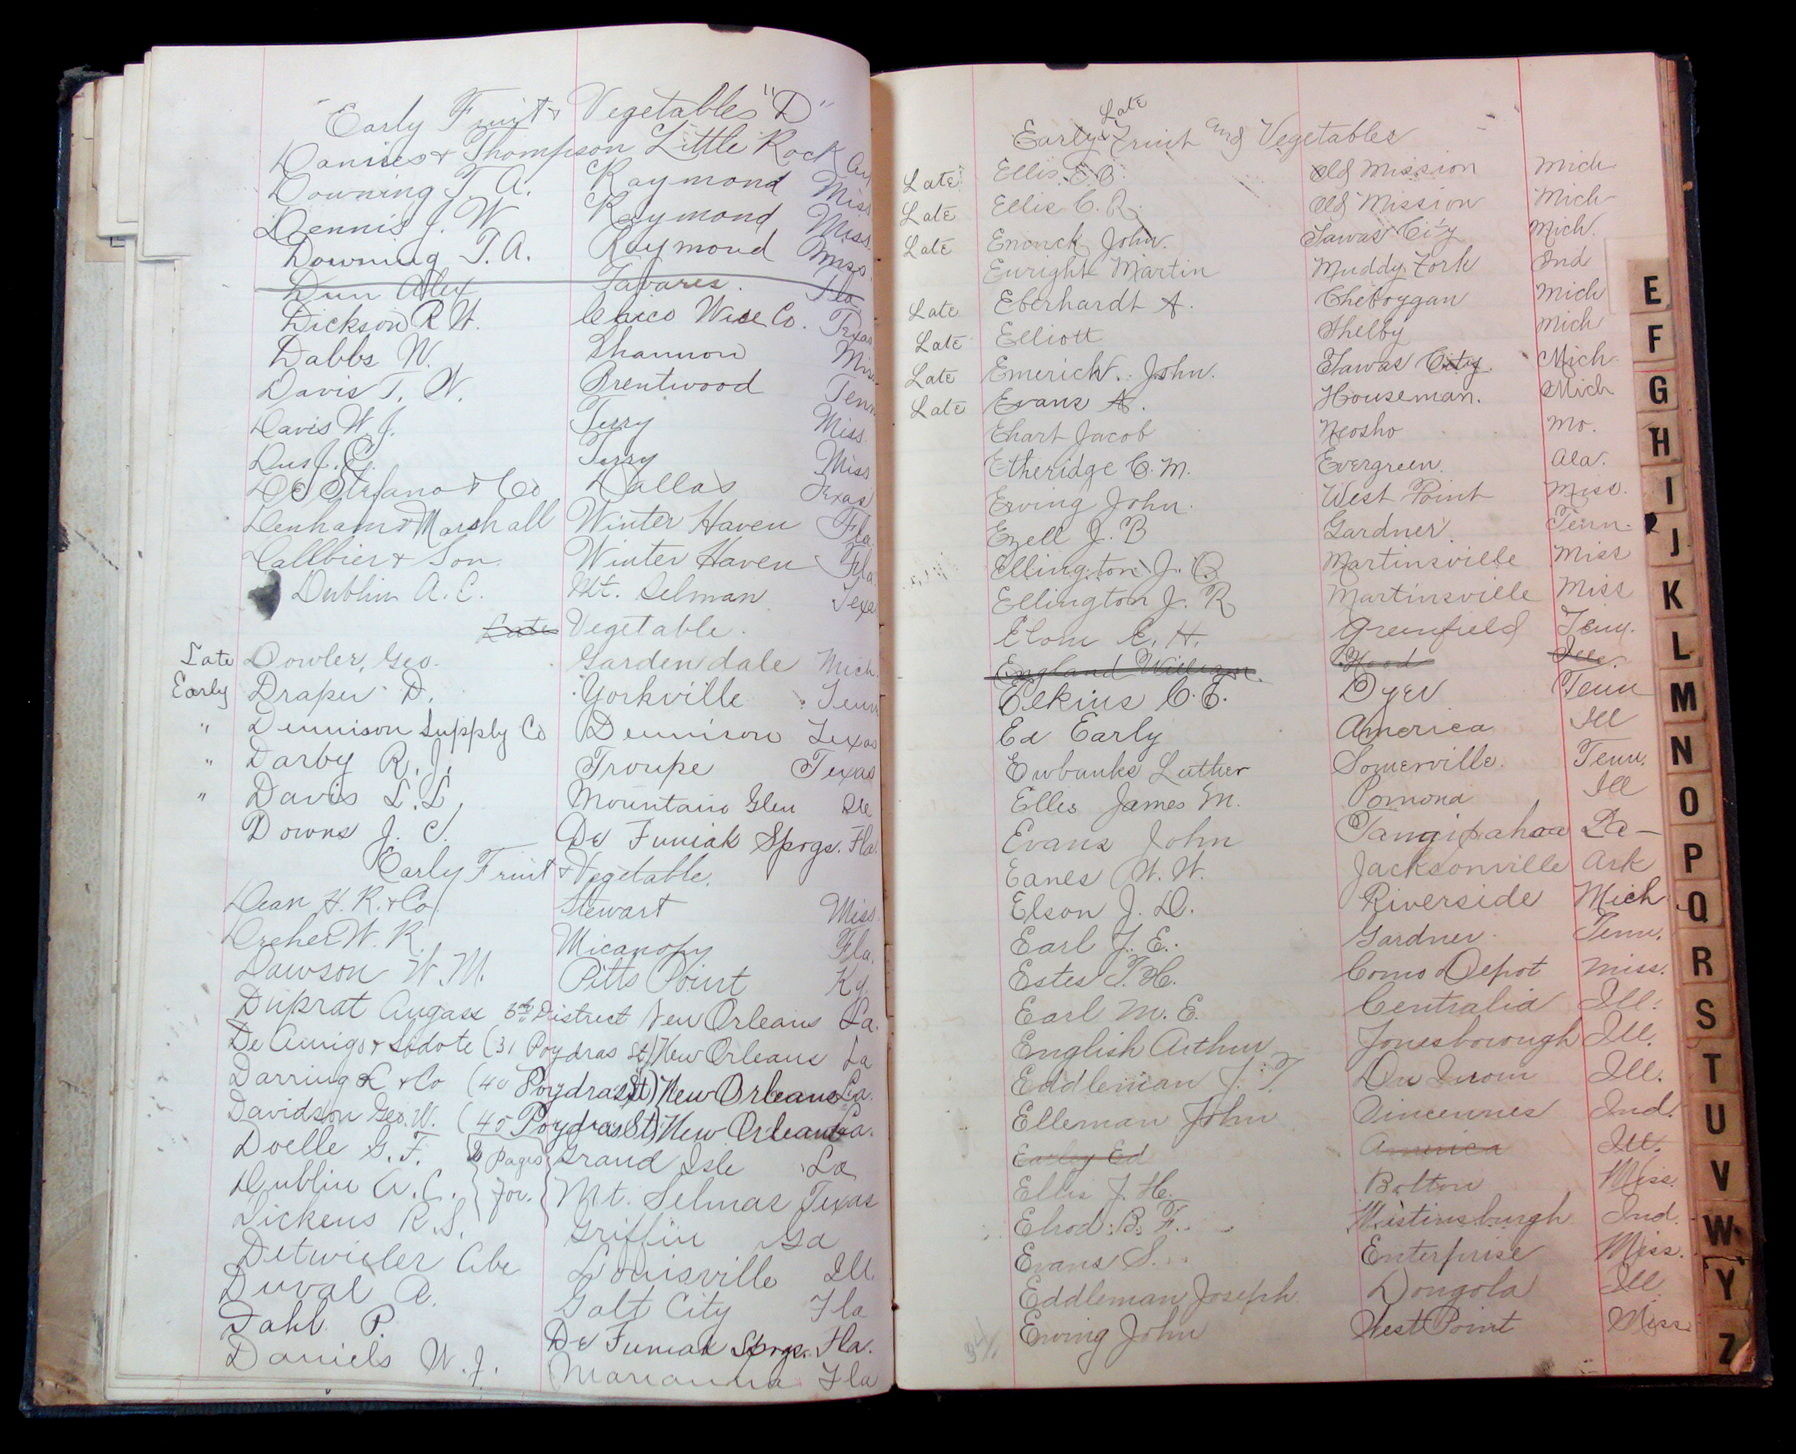 "Early Fruit & Vegetables "D"
Danies & Thompson Little Rock Ark
Downing T. A. Raymond Miss
Dennis J. W. Raymond Miss.
Downing T. A. Raymond Miss.
Dun Alex Tavares. Fla
Dickson R. W. Chico Wise Co. Texas
Dabbs W. Shannon Miss
Davis T. W. Brentwood Tenn
Davis W. J. Terry Miss.
J. C. Terry Miss
De Stefano & Co Dallas Texas
Denham & Marshall Winter Haven Fla
& Son Winter Haven Fla
Dublin A. C. Mt. Selman Texas
Late Vegetable.
Late Dowler, Geo. Gardendale Mich.
Early Draper D. Yorkville Tenn
" Dennison Supply Co Dennison Texas
" Darby R. J. Troupe Texas
" Davis L. L. Mountain Glen Ill
Downs J. C. De Funiak Sprgs. Fla.
Early Fruit & Vegetable.
Dean H. R. & Co Stewart Miss.
Dreher W. R. Micanopy Fla.
Dawson W. M. Pitts Point Ky.
Duprat 3rd District New Orleans La.
De Amigo & Lidote (31 Poydras St) New Orleans La
Darring & Co (40 Poydras St) New Orleans La.
Davidson Geo. W. (45 Poydras St) New Orleans La.
Doelle G. F. Pages Grand Isle La
Dublin A. C. for. Mt. Selmas Texas
Dickens R. S. Griffin Ga
Detwieler Abe Louisville Ill
Duval A. Galt City Fla
Dahl P De Funiak Sprgs. Fla.
Daniels W. J. Marianna Fla
Late
Early & Fruit and Vegetables
Late Ellis E. B. Old Mission Mich
Late Ellis C. R. Old Mission Mich
Late John. Tawas City Mich.
Enright Martin Muddy Fork Ind
Late Eberhardt A. Cheboygan Mich
Late Elliott Shelby Mich
Late Emerick John. Tawas City. Mich
Late Evans A. Houseman. Mich
Ehart Jacob Neosho Mo.
Etheridge C. M. Evergreen. Ala.
Erving John. West Point Miss.
Ezell J. B Gardner. Tenn.
Ellington J. R Martinsville Miss
Ellington J. R Martinsville Miss
Elom E. H. Greenfield Tenn.
England William. Wood Ills.
Elkins C. C. Dyer Tenn
Ed Early America Ill
Ewbanks Luther Somerville. Tenn.
Ellis James M. Pomona Ill
Evans John Tangipahoa La-
Eanes W. W. Jacksonville Ark
Elson J. D. Riverside Mich
Earl J. E. Gardner Tenn.
Estes T. H. Como Depot Miss.
Earl M. E. Centralia Ill.
English Arthur Jonesborough Ill.
Eddleman J. T. Du Quoin Ill.
Elleman John Vincennes Ind.
Early Ed America Ill.
Ellis J. H. Bolton Miss.
Elrod B. F. Ind.
Evans S. Enterprise Miss.
Eddleman Joseph Dongola Ill
Erving John West Point Miss.
E
F
G
H
I
J
K
L
M
N
O
P
Q
R
S
T
U
V
W
Y
Z